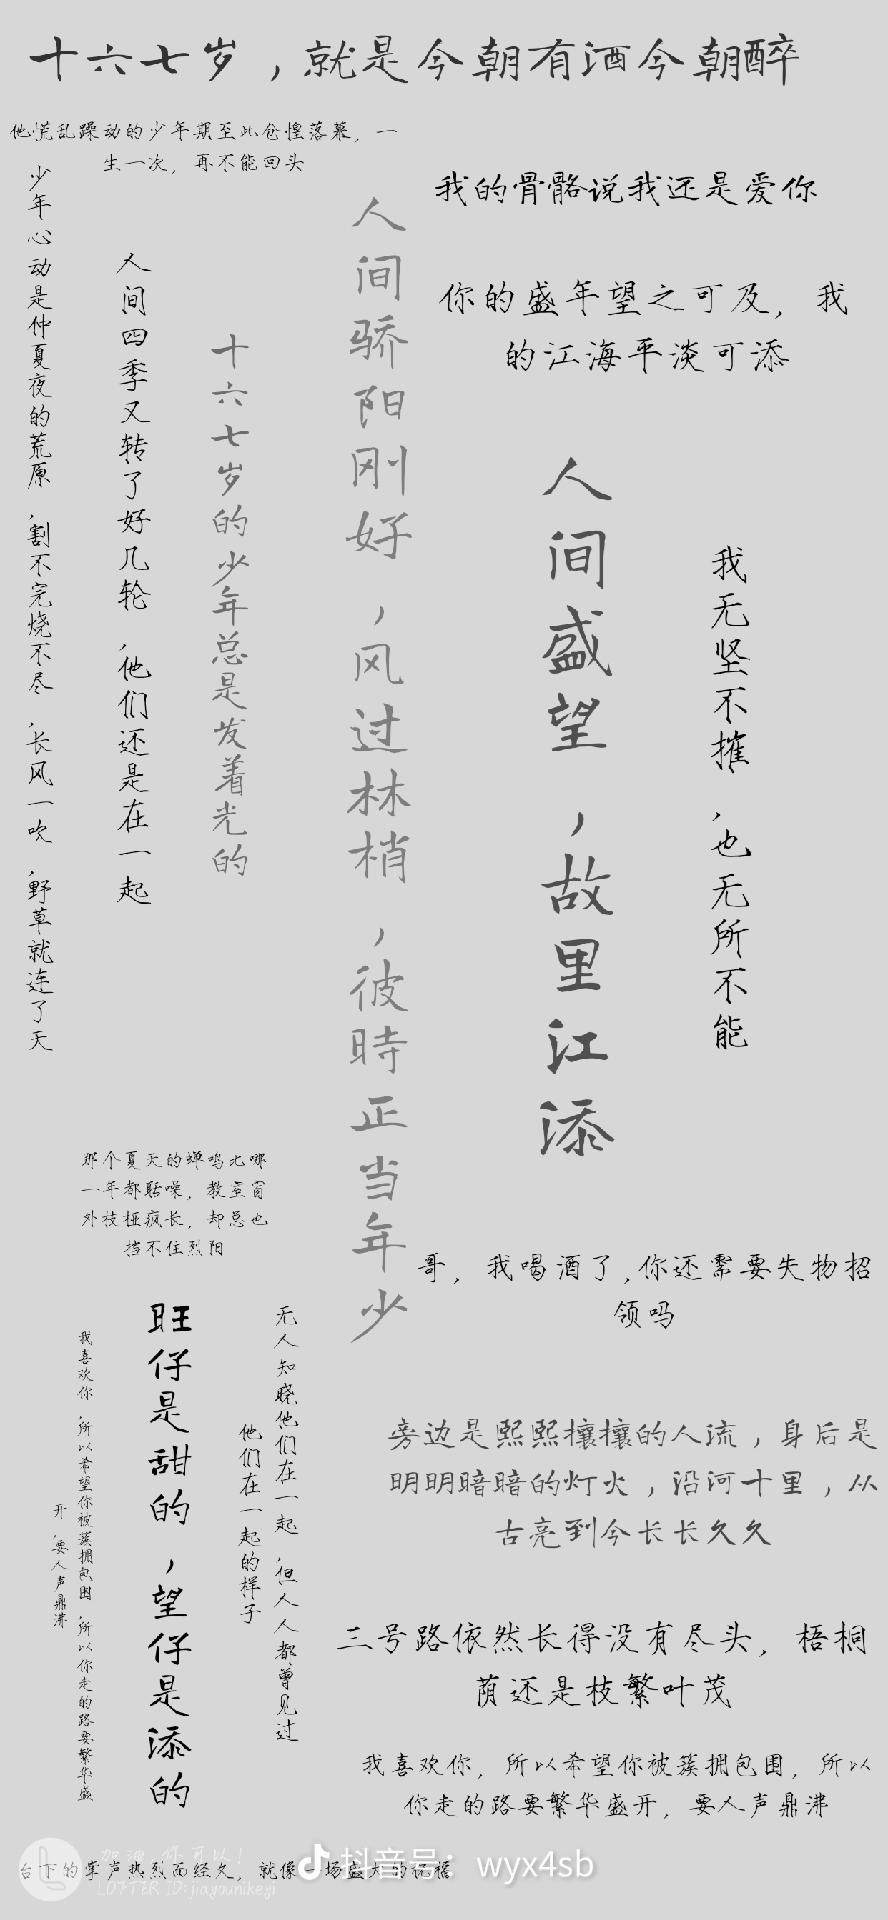 十六七岁，就是今朝有酒今朝醉
他慌乱躁动的少年期至此仓惶落幕，一
生一次，再不能回头
少年心动是仲夏夜的荒原，割不完烧不尽，长风一吹，野草就连了天
人间四季又转了好几轮，他们还是在一起
十六七岁的少年总是发着光的
人间骄阳刚好，风过林梢，彼時正当年少
我的骨骼说我还是爱你
你的盛年望之可及，我
的江海平淡可添
人间盛望，故里江添
我无坚不摧，也无所不能
那个夏天的蝉鸣比哪
一年都聒噪，教室窗
外枝桠疯长，却总也
挡不住烈阳
哥，我喝酒了，你还需要失物招
领吗
我喜欢你，所以希望你被簇拥包围，所以你走的路要繁华盛
开，要人声鼎沸
旺仔是甜的，望仔是添的
无人知晓他们在一起，但人人都曾见过
他们在一起的样子
旁边是熙熙攘攘的人流，身后是
明明暗暗的灯火，沿河十里，从
古亮到今长长久久
三号路依然长得没有尽头，梧桐
荫还是枝繁叶茂
我喜欢你，所以希望你被簇拥包围，所以
你走的路要繁华盛开，要人声鼎沸
台下的掌声热烈而经久，就像一场盛大的祝福
加油,你可以!
LOFTER ID:jiayounikeyi
抖音号：wyx4sb